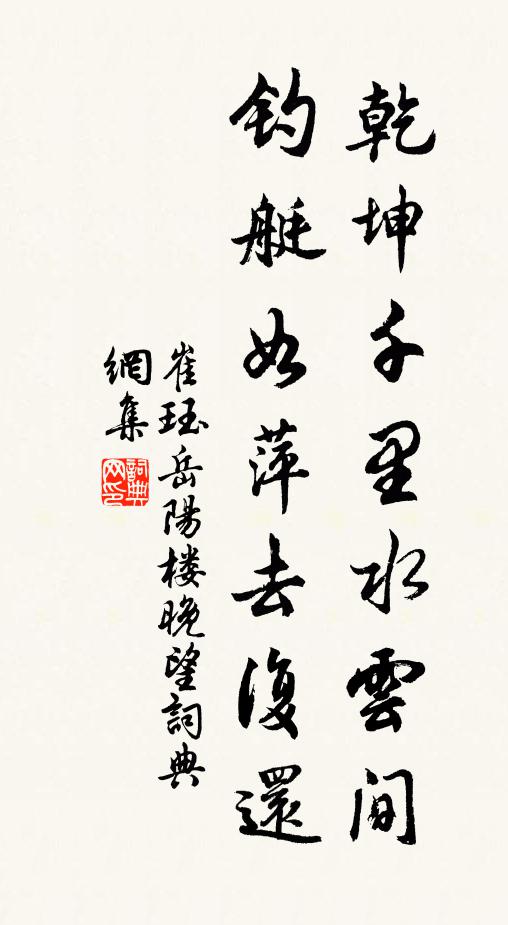 乾坤千里水雲间
钓艇如萍去復還
崔珏岳陽楼晚望詞典
網集
詞典
网印